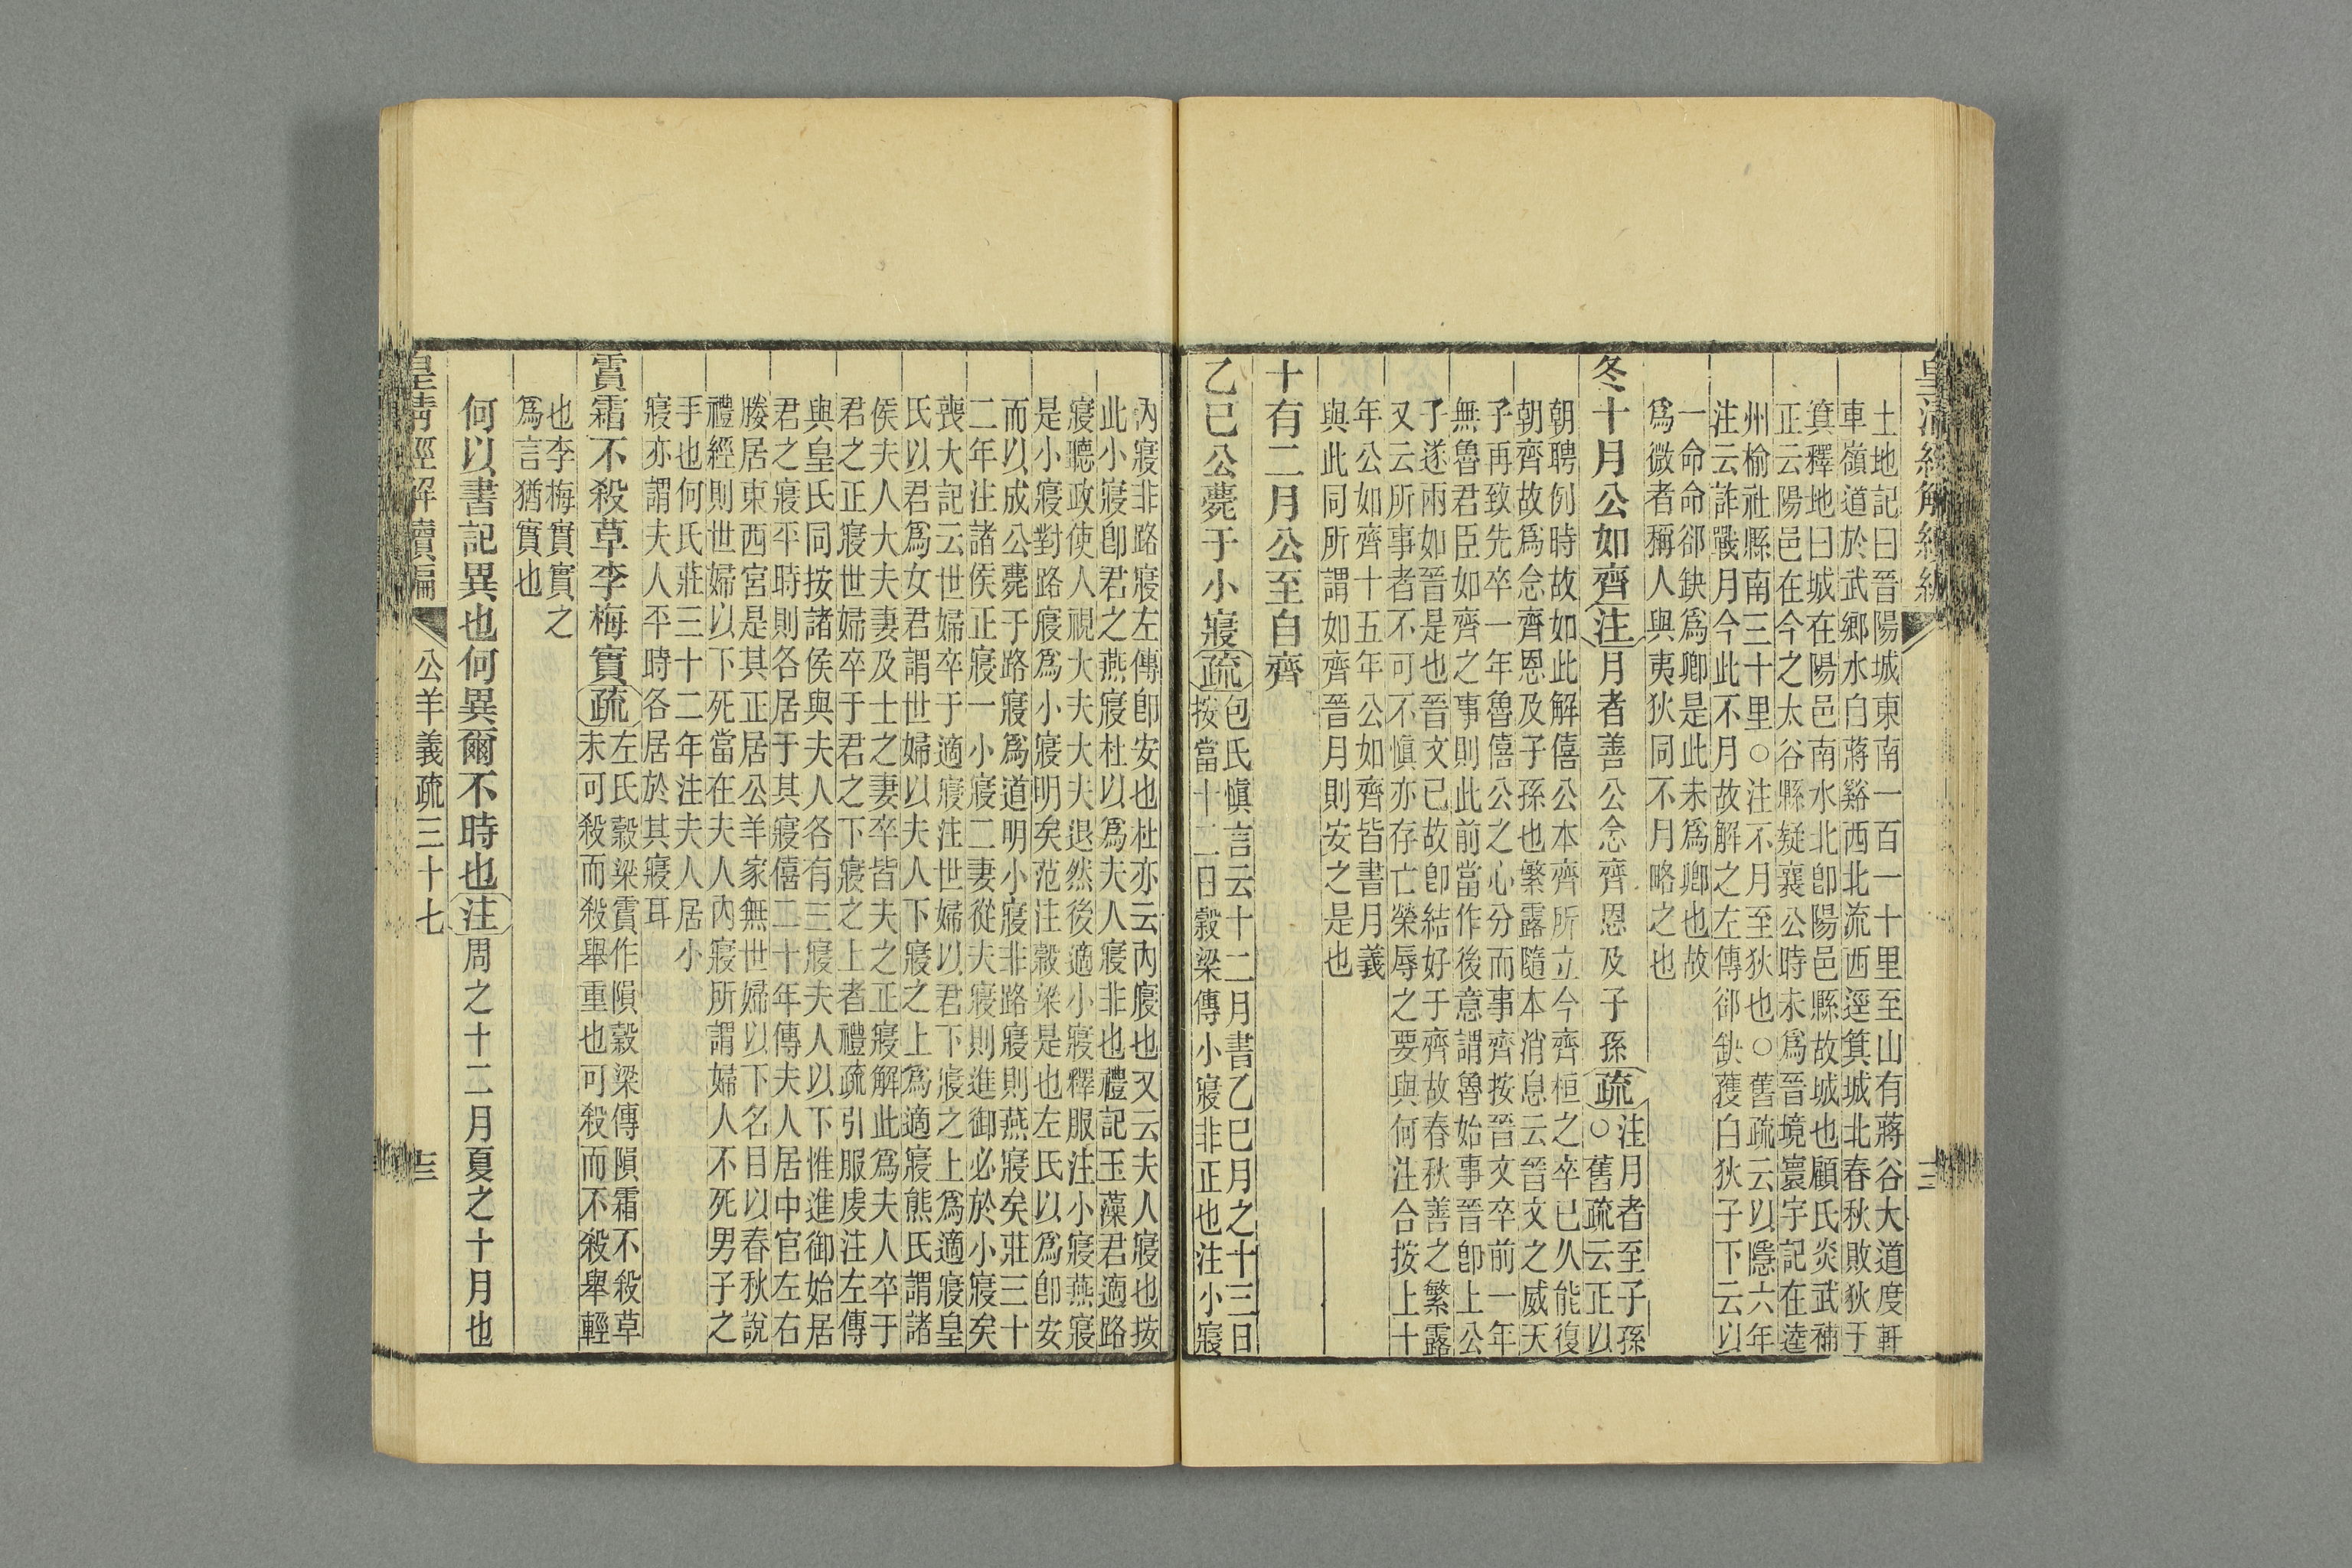 皇清經解續編
三
土地記曰晉陽城東南一百一十里至山有蔣谷大道度軒
車嶺道於武鄉水自蔣谿西北流西逕箕城北春秋敗狄于
箕釋地曰城在陽邑南水北卽陽邑縣故城也顧氏炎武補
正云陽邑在今之太谷縣疑襄公時未爲晉境寰宇記在逵
州榆社縣南三十里○注不月至狄也○舊疏云以隱六年
注云詐戰月今此不月故解之左傳郤缺獲白狄子下云以
一命命郤缺爲卿是此未爲卿也故
爲微者稱人與夷狄同不月略之也
冬十月公如齊注月者善公念齊恩及子孫疏注月者至子孫
○舊疏云正以
朝聘例時故如此解僖公本齊所立今齊桓之卒已久能復
朝齊故爲念齊恩及子孫也繁露隨本消息云晉文之威天
子再致先卒一年魯僖公之心分而事齊按晉文卒前一年
無魯君臣如齊之事則此前當作後意謂魯始事晉卽上公
子遂兩如晉是也晉文已故卽結好于齊故春秋善之繁露
又云所事者不可不慎亦存亡榮辱之要與何注合按上十
年公如齊十五年公如齊皆書月義
與此同所謂如齊晉月則安之是也
十有二月公至自齊
乙巳公薨于小寢疏包氏慎言云十二月書乙巳月之十三日
按當十二日穀梁傳小寢非正也注小寢
內寢非路寢左傳卽安也杜亦云內寢也又云夫人寢也按
此小寢卽君之燕寢杜以爲夫人寢非也禮記玉藻君適路
寢聽政使人視大夫大夫退然後適小寢釋服注小寢燕寢
是小寢對路寢爲小寢明矣范注穀梁是也左氏以爲卽安
而以成公薨于路寢爲道明小寢非路寢則燕寢矣莊三十
二年注諸侯正寢一小寢二妻從夫寢則進御必於小寢矣
喪大記云世婦卒于適寢注世婦以君下寢之上爲適寢皇
氏以君爲女君謂世婦以夫人下寢之上爲適寢熊氏謂諸
侯夫人大夫妻及士之妻卒皆夫之正寢解此爲夫人卒于
君之正寢世婦卒于君之下寢之上者禮疏引服虔注左傳
與皇氏同按諸侯與夫人各有三寢夫人以下惟進御始居
君之寢平時則各居于其寢僖二十年傳夫人居中官左右
媵居東西宮是其正居公羊家無世婦以下名目以春秋說
禮經則世婦以下死當在夫人內寢所謂婦人不死男子之
手也何氏莊三十二年注夫人居小
寢亦謂夫人平時各居於其寢耳
霣霜不殺草李梅實疏左氏穀梁霣作隕穀梁傳隕霜不殺草
未可殺而殺舉重也可殺而不殺舉輕
也李梅實實之
爲言猶實也
何以書記異也何異爾不時也注周之十二月夏之十月也
皇清經解續編
公羊義疏三十七
三